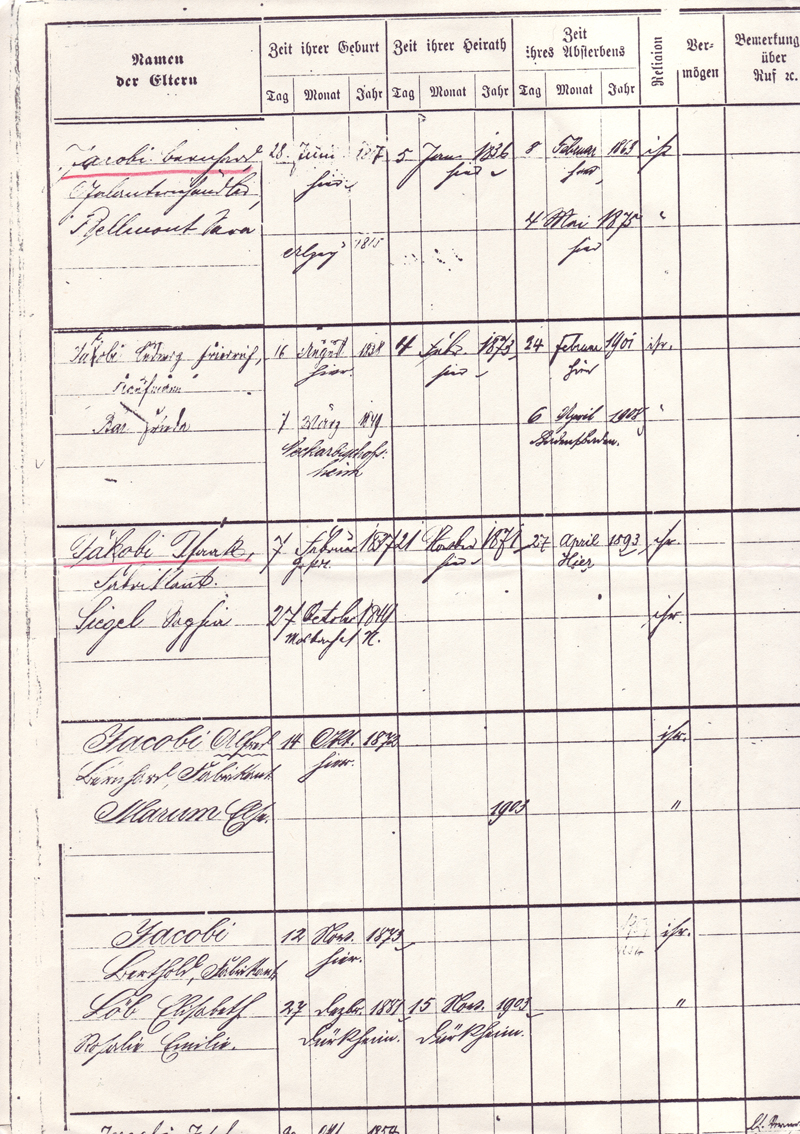 Namen der Eltern
Zeit ihrer Geburt
Zeit ihrer Heirath
Zeit ihres Absterbens
Religion
Ver-mögen
Bemerkung über Ruf ꝛc.
Tag Monat Jahr Tag Monat Jahr Tag Monat Jahr
Jacobi Bernhard 28 Juni 5 Jan. 1836 8 Februar 1863 isr
Galanteriehändler, hier hier hier
Bellmont Sara 4 Mai 1875 "
Alzey 1815 hier
Jakobi Ludwig Friedrich, 16 August 1838 4 Febr. 1873 24 Februar 1901 isr.
Kaufmann hier. hier hier
Bär Frieda 7 März 1849 6 April 1908 "
Neckarbischofs- Baden-Baden.
heim
Jakobi Isaak, 7 Februar 1837 21 1871 27 April 1893 isr
Fabrikant. hier Hier
Siegel Sophia 27 October 1849 isr.
Jacobi Alfred 14 Okt. 1872 isr.
Bernhard, Fabrikant hier.
Marum Else. 1903 "
Jacobi 12 Nov. 1873 isr.
Berthold, Fabrikant hier.
Löb Elisabeth 27 Dezbr. 1881 15 Nov. 1903 "
Rosalie Emilie. Dürkheim. Dürkheim.
Okt 1854